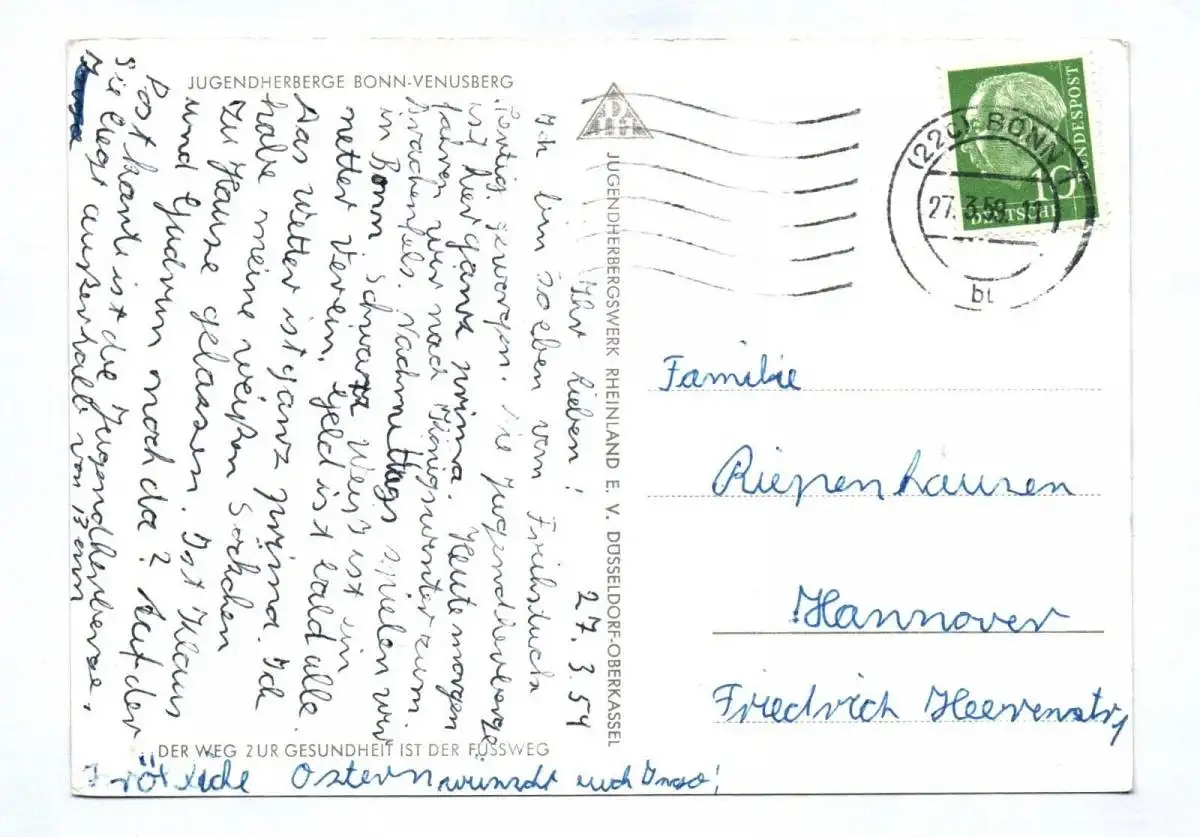 JUGENDHERBERGE BONN-VENUSBERG
Ihr Lieben! 27.3.59
Ich bin soeben vom Frühstück
fertig geworden. Die Jugendherberge
ist hier ganz prima. Heute morgen
fahren wir nach Königswinter zum
Drachenfels. Nachmittags spielen wir
in Bonn. Schwarz Weiß ist ein
netter Verein. Geld ist bald alle
Das Wetter ist ganz prima. Ich
habe meine weißen Söckchen
zu Hause gelassen. Ist Klaus
und Gudrun noch da? Auf der
Postkarte ist die Jugendherberge,
Sie liegt außerhalb von Bonn
Fröhliche Ostern wünscht euch Ingo!
DER WEG ZUR GESUNDHEIT IST DER FUSSWEG
JUGENDHERBERGSWERK RHEINLAND E. V. DÜSSELDORF-OBERKASSEL
(22c) BONN 1
27.3.59.-11
bt
DEUTSCHE
BUNDESPOST
10
Familie
Riepenhausen
Hannover
Friedrich Heerenstr